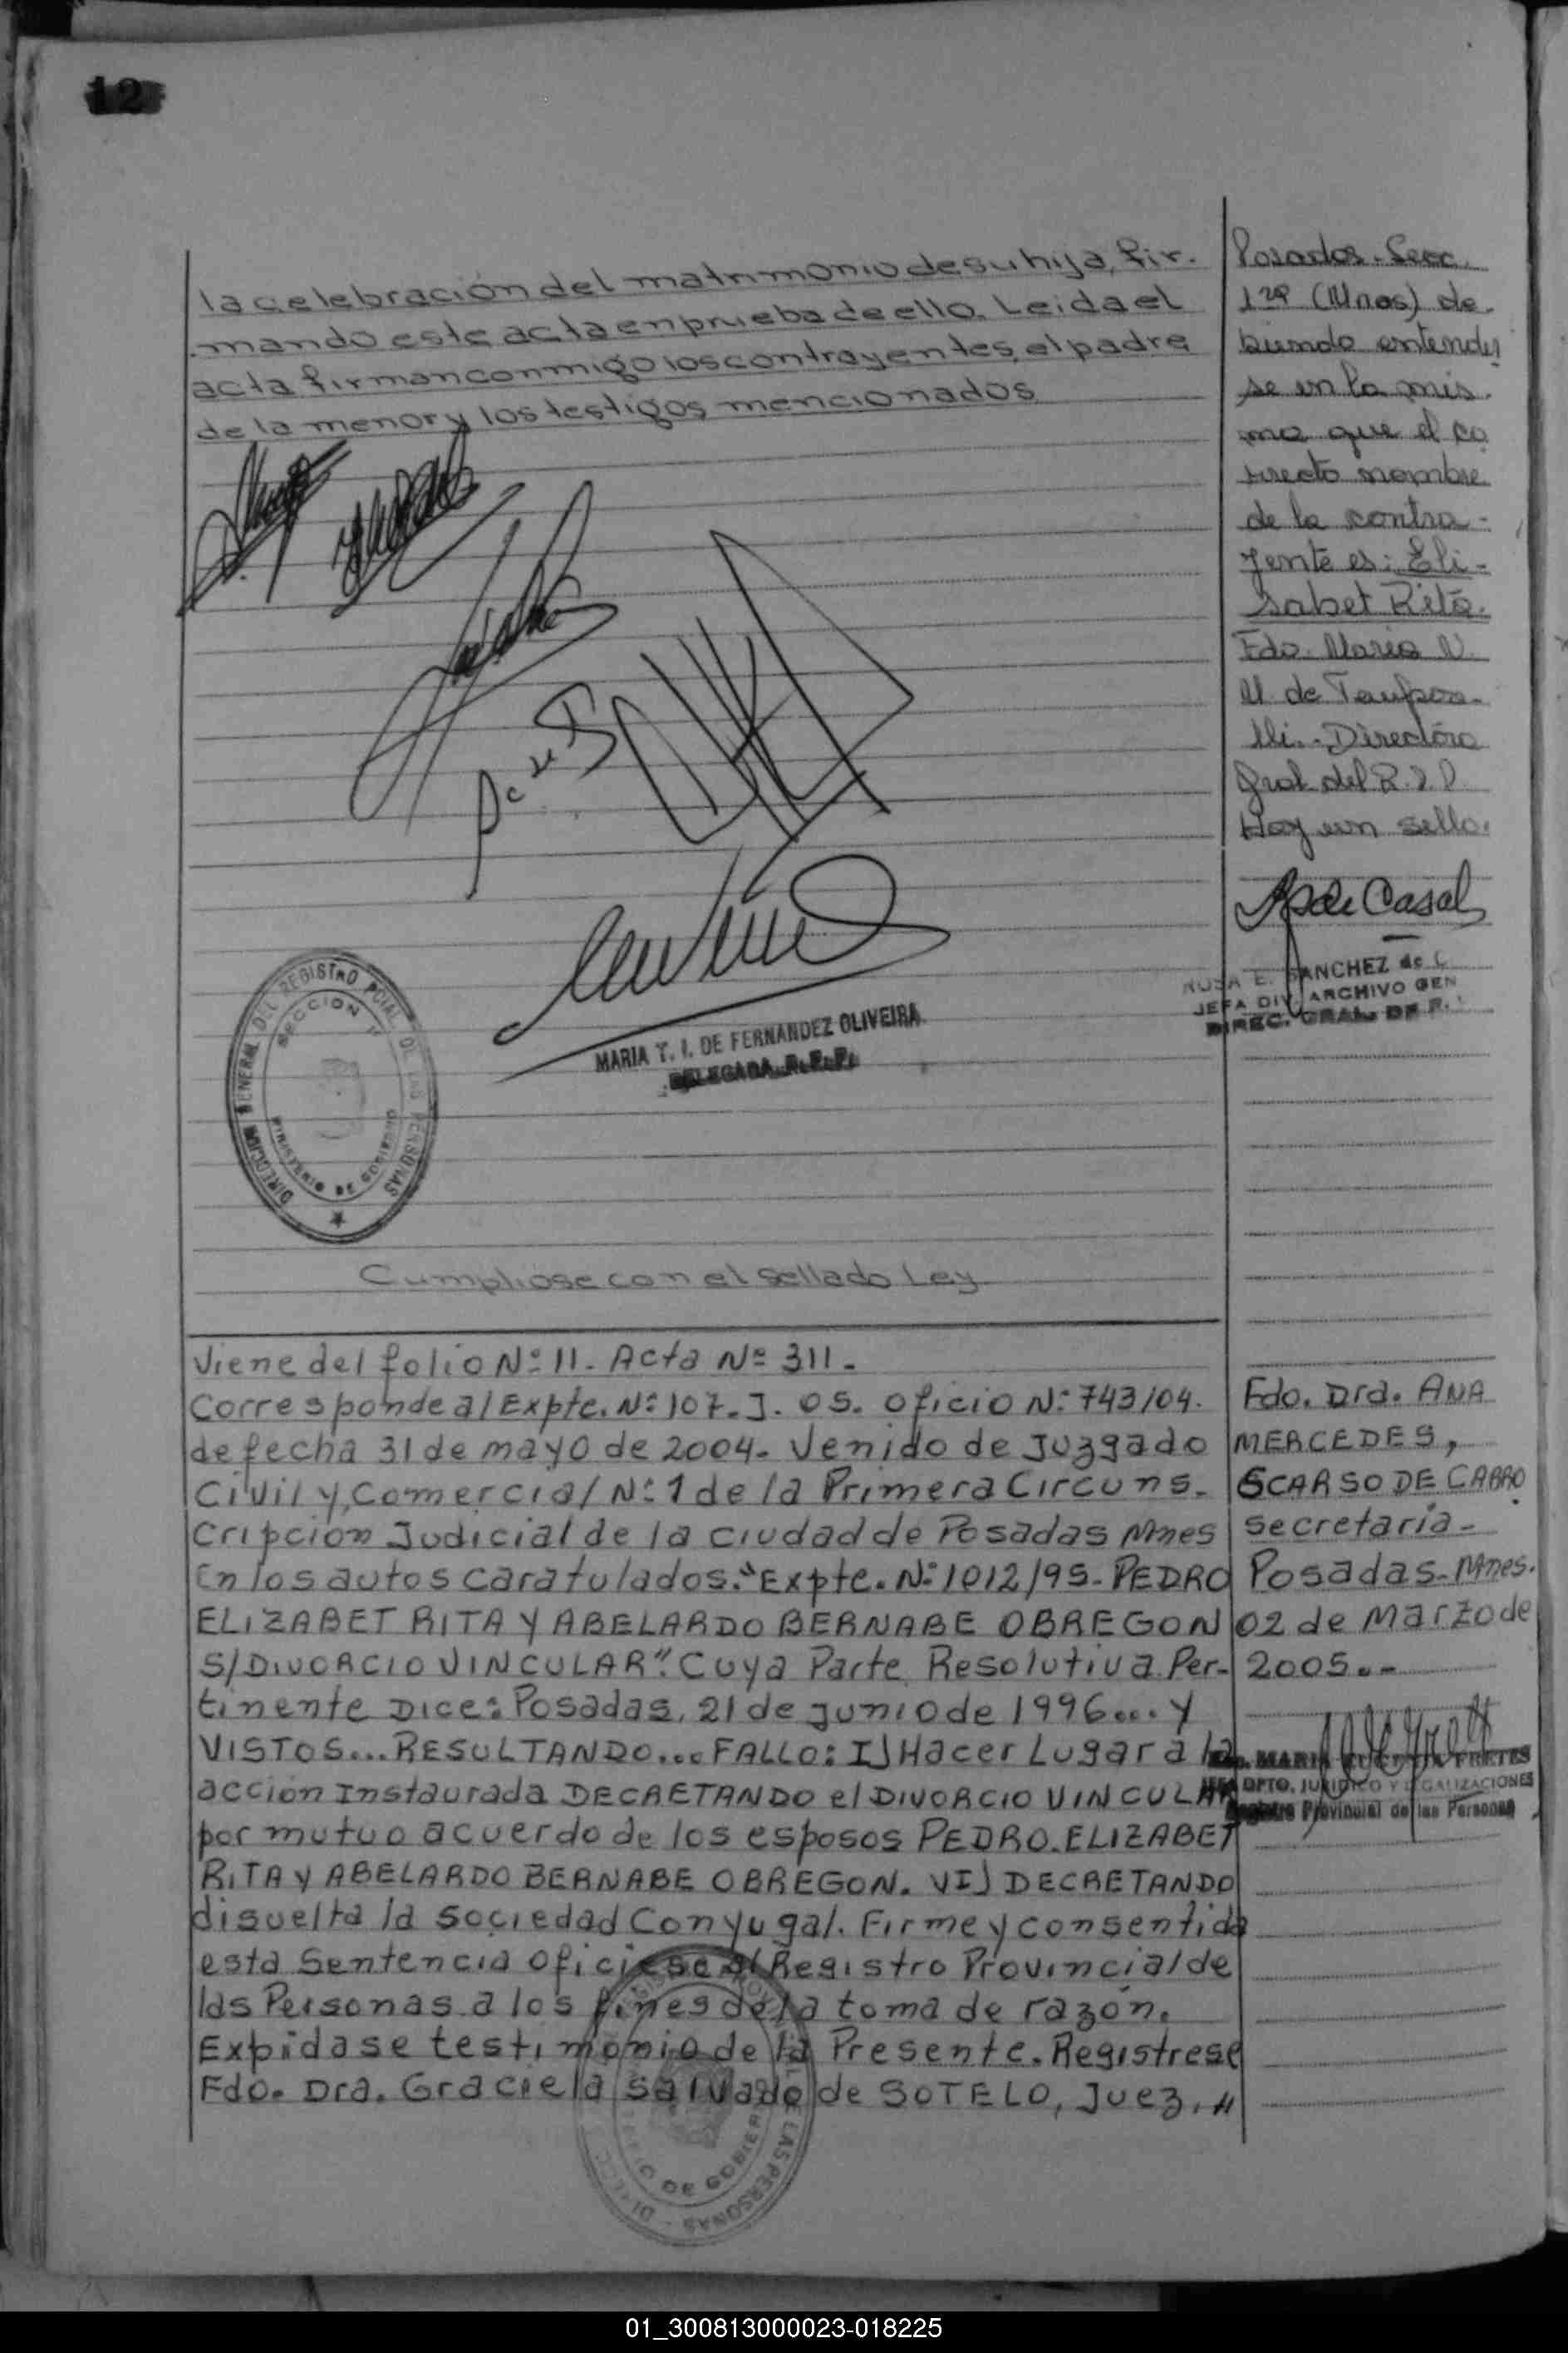 12
la celebración del matrimonio de su hija, fir-
mando este acta en prueba de ello. Leida el
acta firman conmigo los contrayentes, el padre
de la menor y los testigos mencionados
MARIA T. I. DE FERNANDEZ OLIVEIRA
DELEGADA R.P.P.
DIRECCION GENERAL DEL REGISTRO PCIAL DE LAS PERSONAS
SECCION 1ª
MINISTERIO DE GOBIERNO
Cumpliose con el sellado Ley
Posadas. Secc.
1ra (Mnes) de-
biendo entender
se en la mis-
ma que el co
rrecto nombre
de la contra-
yente es: Eli-
sabet Rita.
Fdo. Maria N.
M. de
Directora
Gral. del R.P.P.
Hay un sello.
de Casal
ROSA E. SANCHEZ de C
JEFA DIV. ARCHIVO GEN
DIREC. GRAL. DE R.
Viene del folio Nº 11. Acta Nº 311.
Corresponde al Expte. Nº 107. J. 05. Oficio Nº 743/04.
de fecha 31 de mayo de 2004. Venido de Juzgado
Civil y Comercial Nº 1 de la Primera Circuns.
Cripcion Judicial de la ciudad de Posadas Mnes
En los autos caratulados. "Expte. Nº 1012/95. PEDRO
ELIZABET RITA Y ABELARDO BERNABE OBREGON
S/DIVORCIO VINCULAR". Cuya Parte Resolutiva Per-
tinente Dice: Posadas, 21 de junio de 1996... y
VISTOS... RESULTANDO... FALLO: I) Hacer Lugar a la
acción Instaurada DECRETANDO el DIVORCIO VINCULAR
por mutuo acuerdo de los esposos PEDRO. ELIZABET
RITA Y ABELARDO BERNABE OBREGON. VI) DECRETANDO
disuelta la sociedad Conyugal. Firme y consentida
esta Sentencia oficiese al Registro Provincial de
las Personas a los fines de la toma de razón.
Expidase testimonio de la Presente. Registrese
Fdo. Dra. Graciela Salvado de SOTELO, Juez. //
Fdo. Dra. ANA
MERCEDES,
SCARSO DE CABRO
secretaria-
Posadas-Mnes.
02 de Marzo de
2005.-
MARIA FRETES
JEFA DPTO. JURIDICO Y LEGALIZACIONES
Registro Provincial de las Personas
DE LAS PERSONAS
DE GOBIERNO
01_300813000023-018225